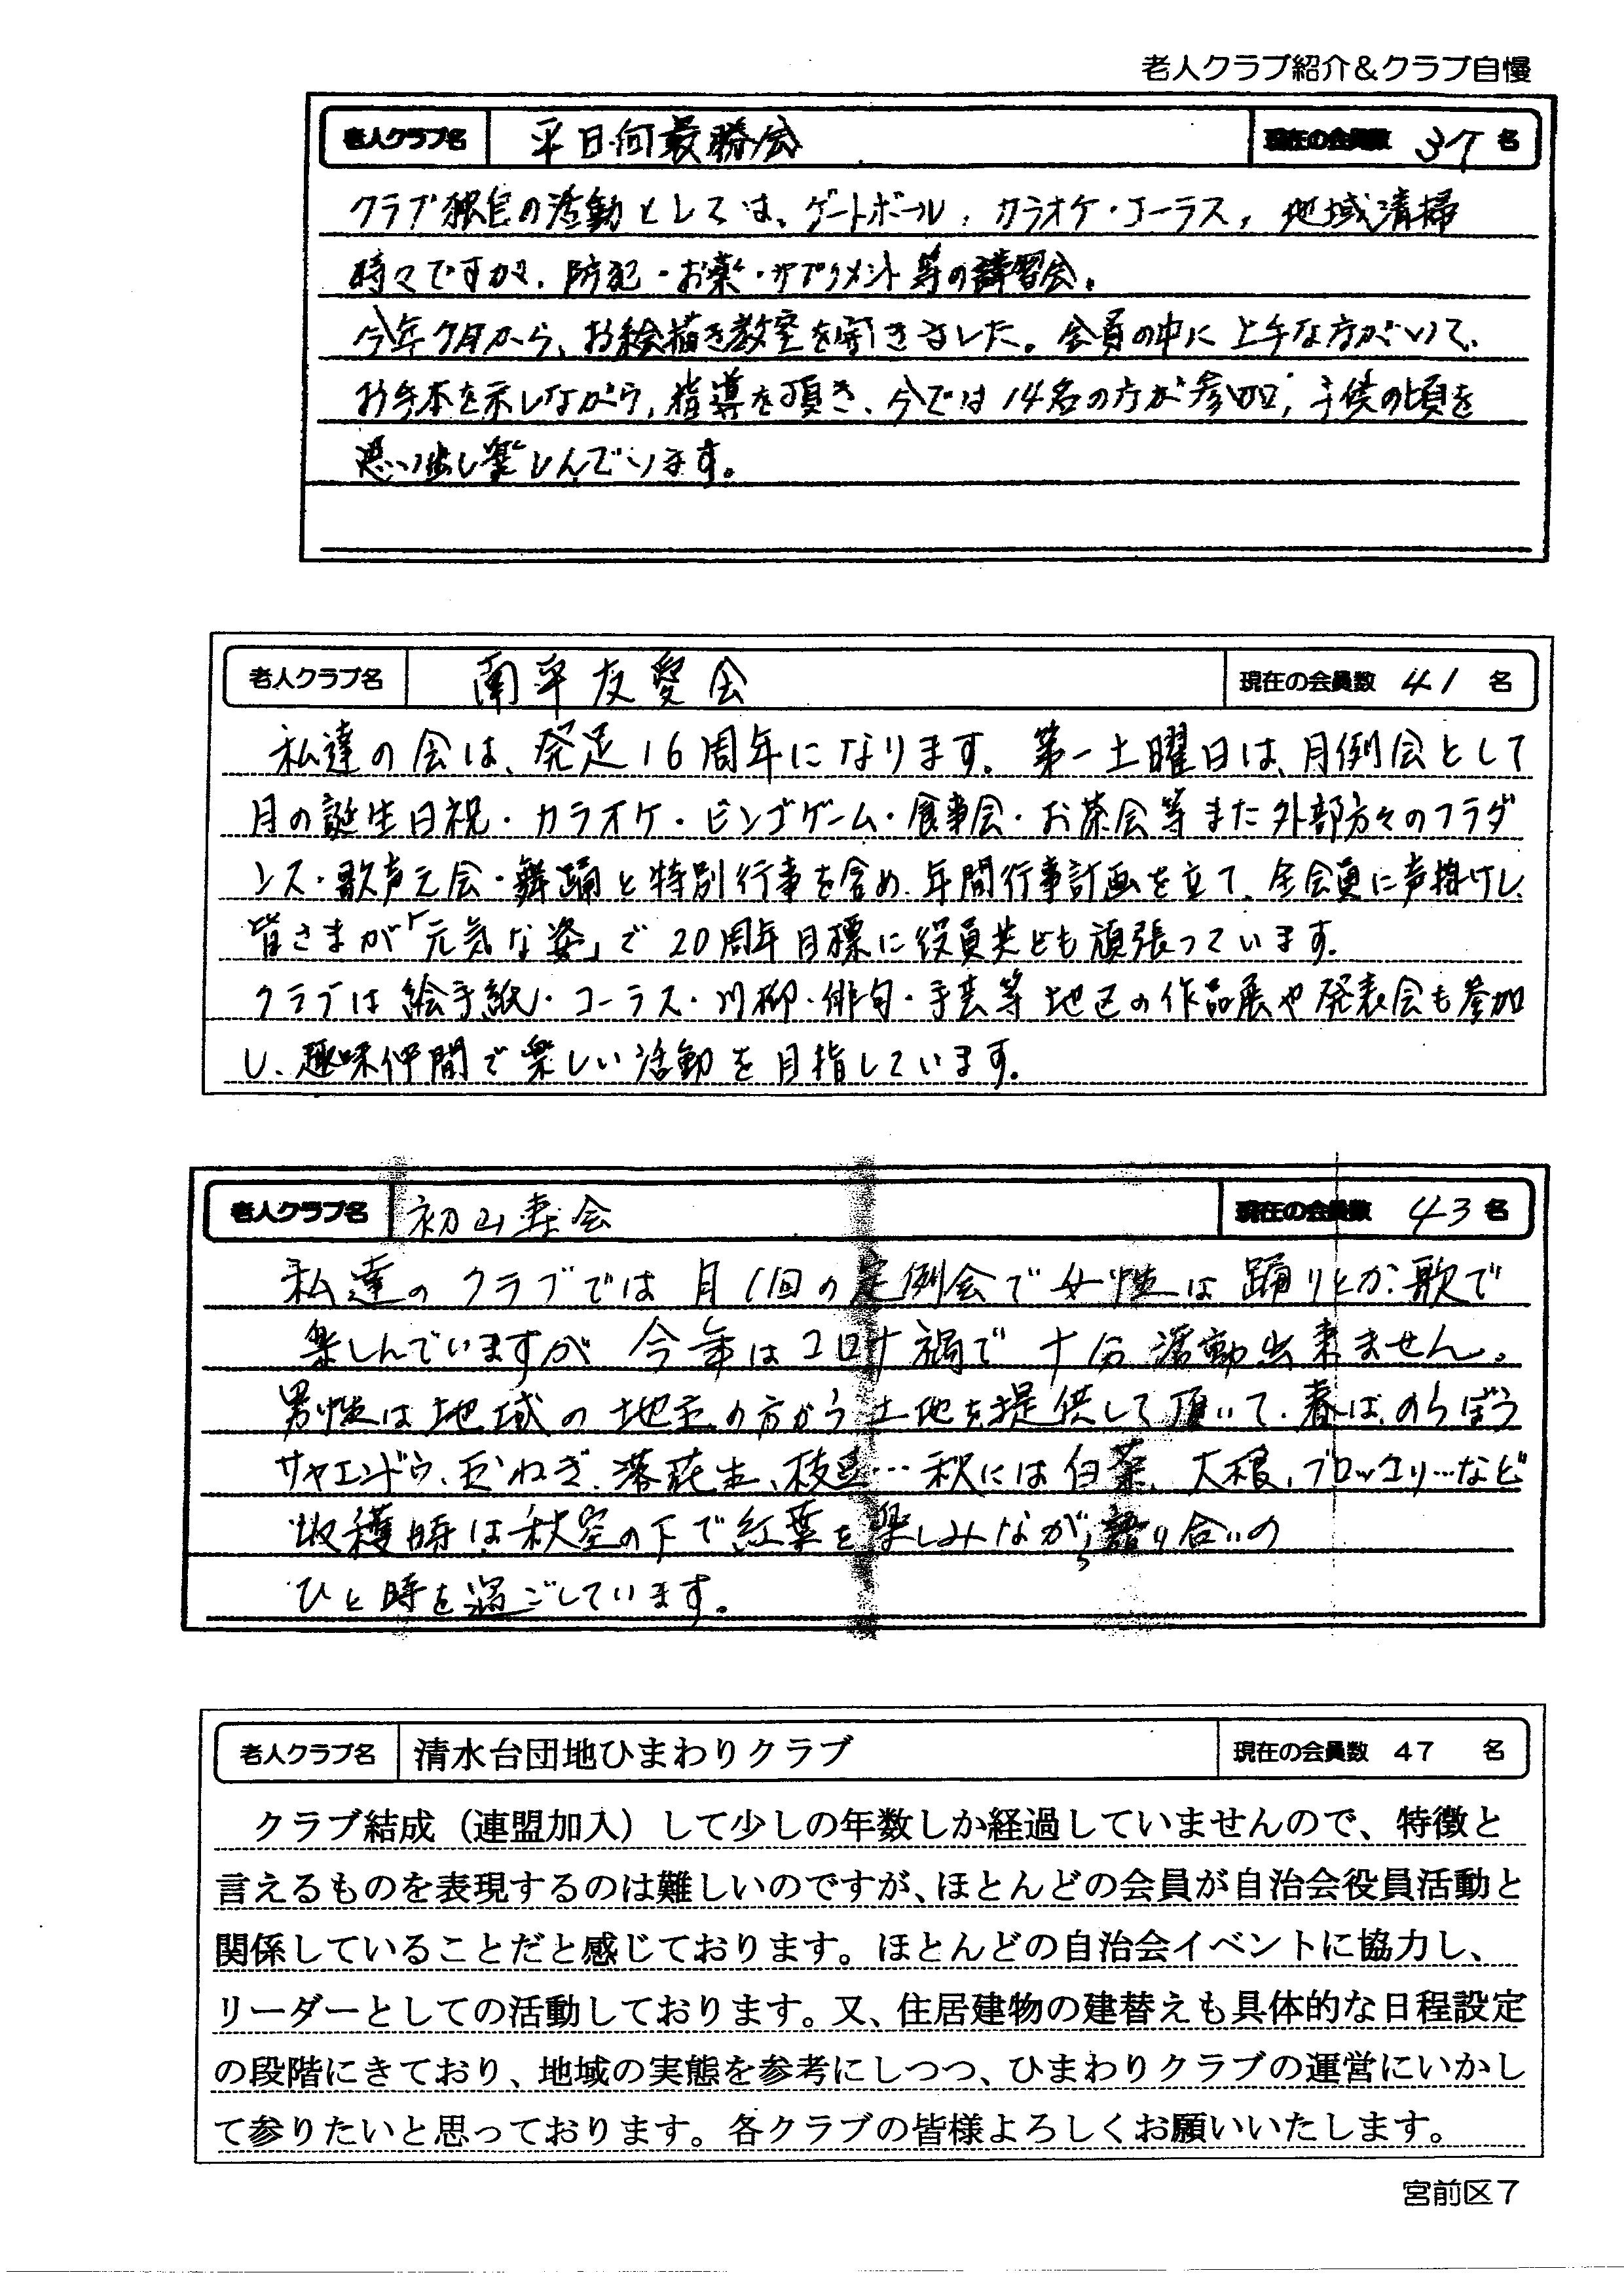 老人クラブ紹介＆クラブ自慢
老人クラブ名 平日向最勝会 現在の会員数 37 名
クラブ独自の活動としては、ゲートボール, カラオケ・コーラス, 地域清掃
時々ですが、防犯・お薬・サプリメント等の講習会。
今年7月から、お絵描き教室を開きました。会員の中に上手な方がいて、
お手本を示しながら, 指導を頂き、今では14名の方が参加, 子供の頃を
思い出し楽しんでいます。
老人クラブ名 南平友愛会 現在の会員数 41 名
私達の会は、発足16周年になります。第一土曜日は、月例会として
月の誕生日祝・カラオケ・ビンゴゲーム・食事会・お茶会等また外部方々のフラダ
ンス・歌声之会・舞踊と特別行事を含め、年間行事計画を立て、全会員に声掛けし、
皆さまが「元気な姿」で20周年目標に役員共ども頑張っています。
クラブは絵手紙・コーラス・川柳・俳句・手芸等地区の作品展や発表会も参加
し、趣味仲間で楽しい活動を目指しています。
老人クラブ名 初山寿会 現在の会員数 43 名
私達のクラブでは月1回の定例会で女性は踊りとか歌で
楽しんでいますが今年はコロナ禍で十分活動出来ません。
男性は地域の地主の方から土地を提供して頂いて、春は、のらぼう
サヤエンドウ、玉ねぎ、落花生、枝豆…秋には白菜、大根、ブロッコリー…など
収穫時は秋空の下で紅葉を楽しみながら語り合いの
ひと時を過ごしています。
老人クラブ名 清水台団地ひまわりクラブ 現在の会員数 47 名
クラブ結成（連盟加入）して少しの年数しか経過していませんので、特徴と
言えるものを表現するのは難しいのですが、ほとんどの会員が自治会役員活動と
関係していることだと感じております。ほとんどの自治会イベントに協力し、
リーダーとしての活動しております。又、住居建物の建替えも具体的な日程設定
の段階にきており、地域の実態を参考にしつつ、ひまわりクラブの運営にいかし
て参りたいと思っております。各クラブの皆様よろしくお願いいたします。
宮前区7